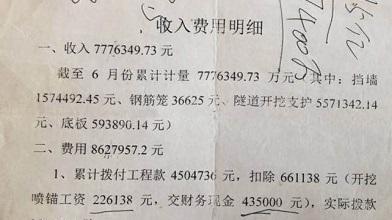 收入费用明细
一、收入 7776349.73 元
截至 6 月份累计计量 7776349.73 万元（其中：挡墙
1574492.45 元、钢筋笼 36625 元、隧道开挖支护 5571342.14
元、底板 593890.14 元）
二、费用 8627957.2 元
1、累计拨付工程款 4504736 元，扣除 661138 元（开挖
喷锚工资 226138 元，交财务现金 435000 元），实际拨款